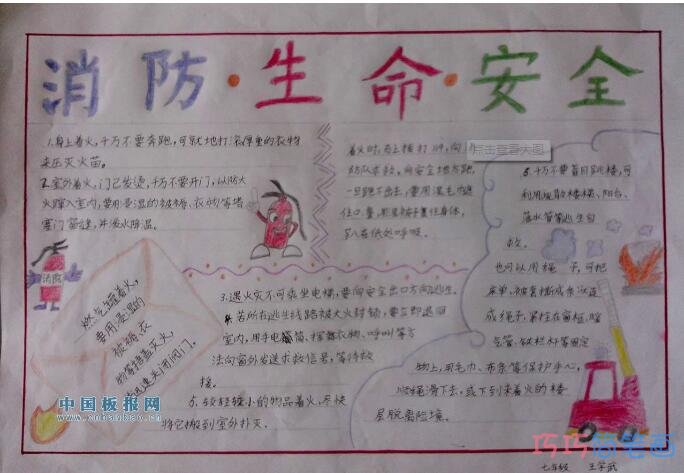 消防·生命·安全
1.身上着火,千万不要奔跑,可就地打滚或用厚重的衣物
来压灭火苗。
2.室外着火,门已发烫,千万不要开门,以防大
火蹿入室内,要用浸湿的被褥、衣物等堵
塞门窗缝,并泼水降温。
着火时,马上拨打119,向
点击查看大图
防队求救,
口鼻,
消防
燃气罐着火,
要用浸湿的
被褥、衣
物等捂盖灭火,
迅速关闭阀门。
3.遇火灾不可乘坐电梯,要向安全出口方向逃生。
若所在逃生线路被大火封锁,要立即退回
室内,用手电筒、挥舞衣物、呼叫等方
法向窗外发送求救信号,等待救
援。
5.较轻较小的物品着火,尽快
将它搬到室外扑灭。
6.千万不要盲目跳楼,可
利用疏散楼梯、阳台、
落水管等逃生自
救。
也可以用绳子,可把
床单、被套撕成条状连
成绳子,紧拴在窗框、暖
气管、铁栏杆等固定
物上,用毛巾、布条等保护手心,
顺绳滑下去,或下到未着火的楼
层脱离险境。
中国板报网
七年级